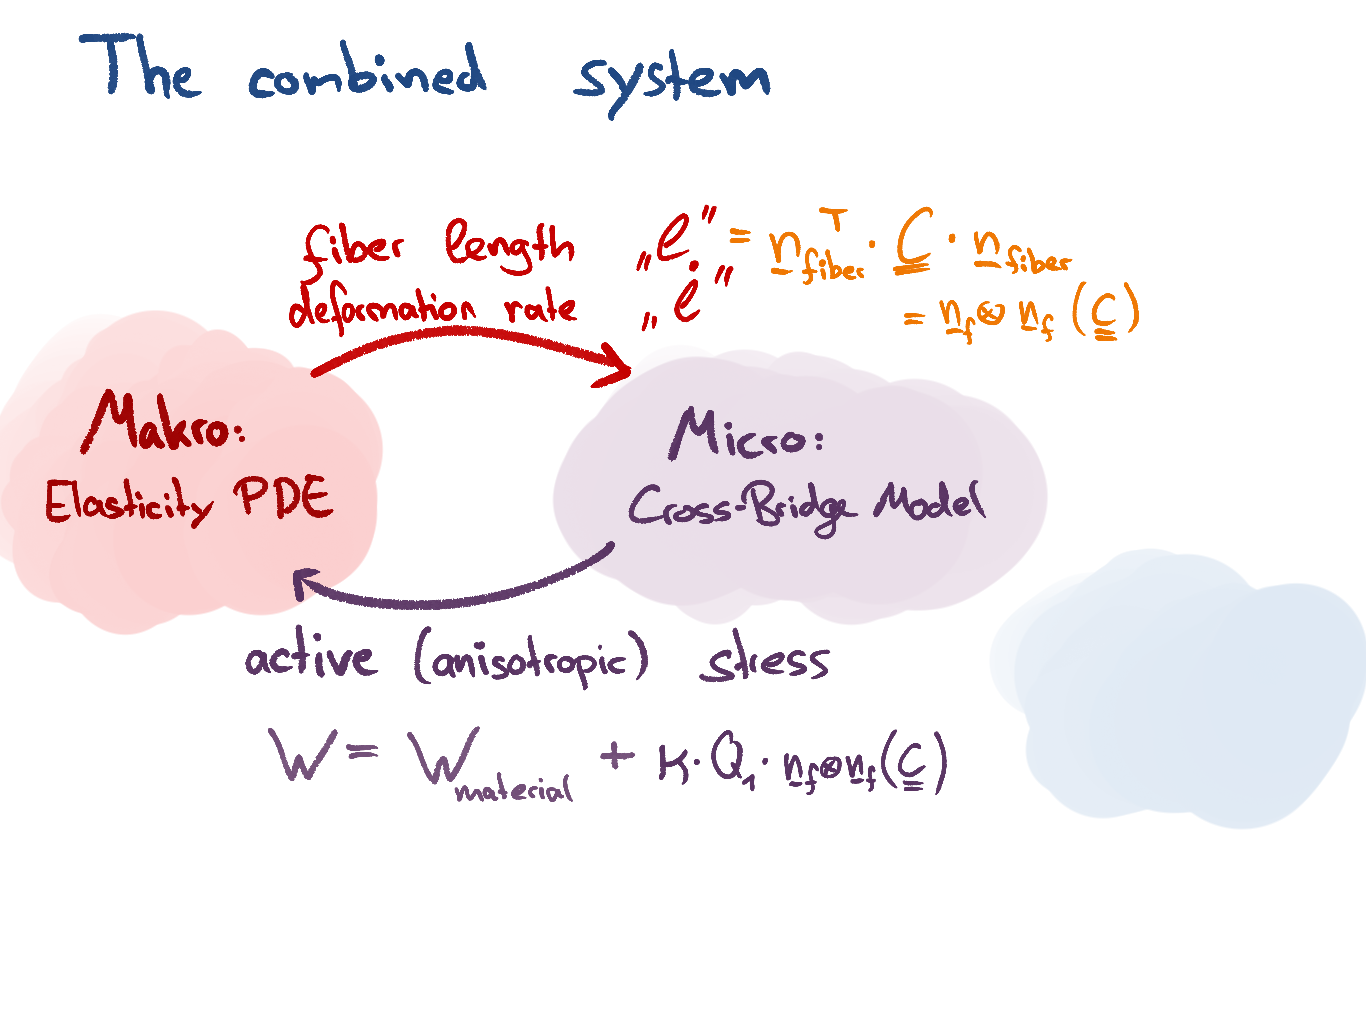 The combined system
fiber length „ℓ" = n_fiber^T · C · n_fiber
deformation rate „ℓ̇" = n_f ⊗ n_f (C)
Makro:
Elasticity PDE
Micro:
Cross-Bridge Model
active (anisotropic) stress
W = W_material + K · Q_1 · n_f ⊗ n_f (C)